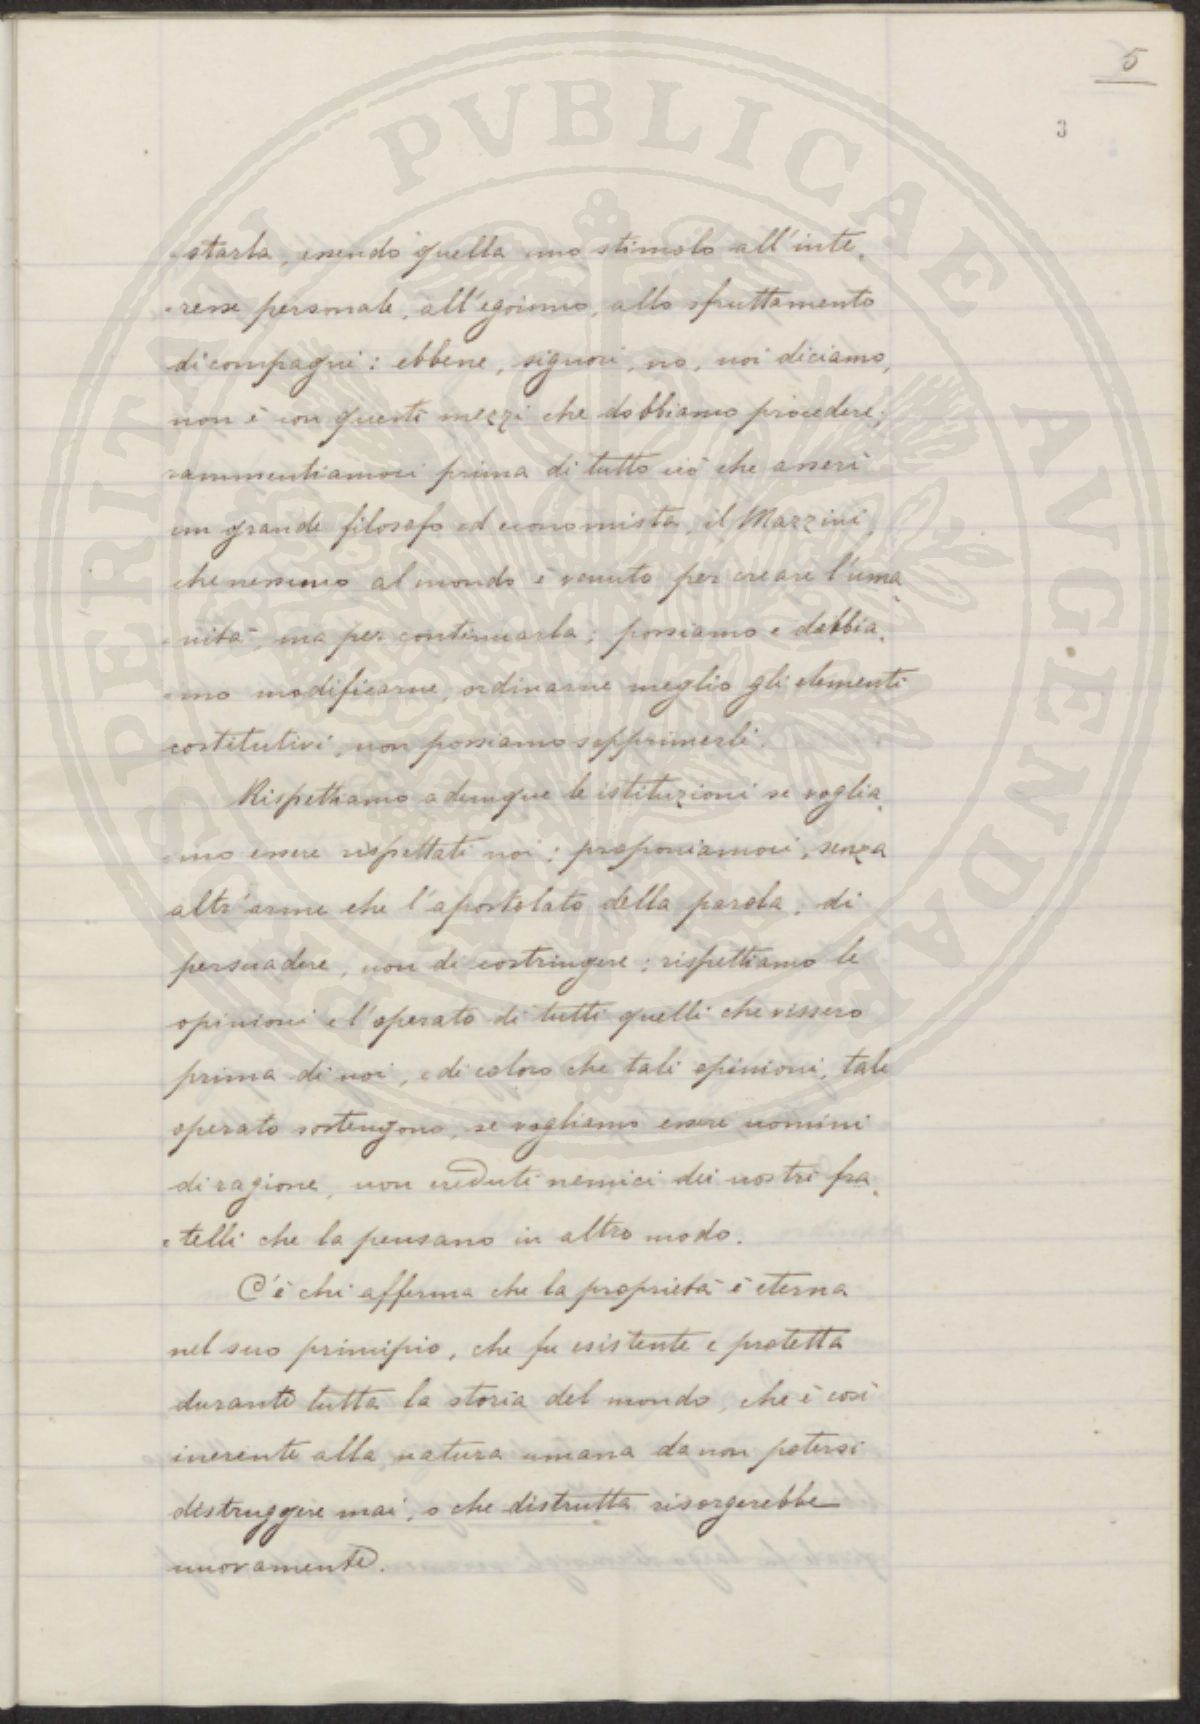 5
3
starla, essendo quella uno stimolo all'inte-
-resse personale, all'egoismo, allo sfruttamento
di compagni: ebbene, signori, no, noi diciamo,
non è con questi mezzi che dobbiamo procedere;
rammentiamoci prima di tutto ciò che asserì
un grande filosofo ed economista, il Mazzini,
che nessuno al mondo è venuto per creare l'uma-
-nità, ma per continuarla; possiamo e dobbia-
-mo modificarne, ordinarne meglio gli elementi
costitutivi, non possiamo sopprimerli.
Rispettiamo adunque le istituzioni se voglia-
-mo essere rispettati noi; proponiamoci, senza
altr'arme che l'apostolato della parola, di
persuadere, non di costringere; rispettiamo le
opinioni e l'operato di tutti quelli che vissero
prima di noi, e di coloro che tali opinioni, tale
operato sostengono, se vogliamo essere uomini
di ragione, non creduti nemici dei nostri fra-
-telli che la pensano in altro modo.
C'è chi afferma che la proprietà è eterna
nel suo principio, che fu esistente e protetta
durante tutta la storia del mondo, che è così
inerente alla natura umana da non potersi
distruggere mai, o che distrutta risorgerebbe
nuovamente.
PROSPERITATI PVBLICAE AVGENDAE